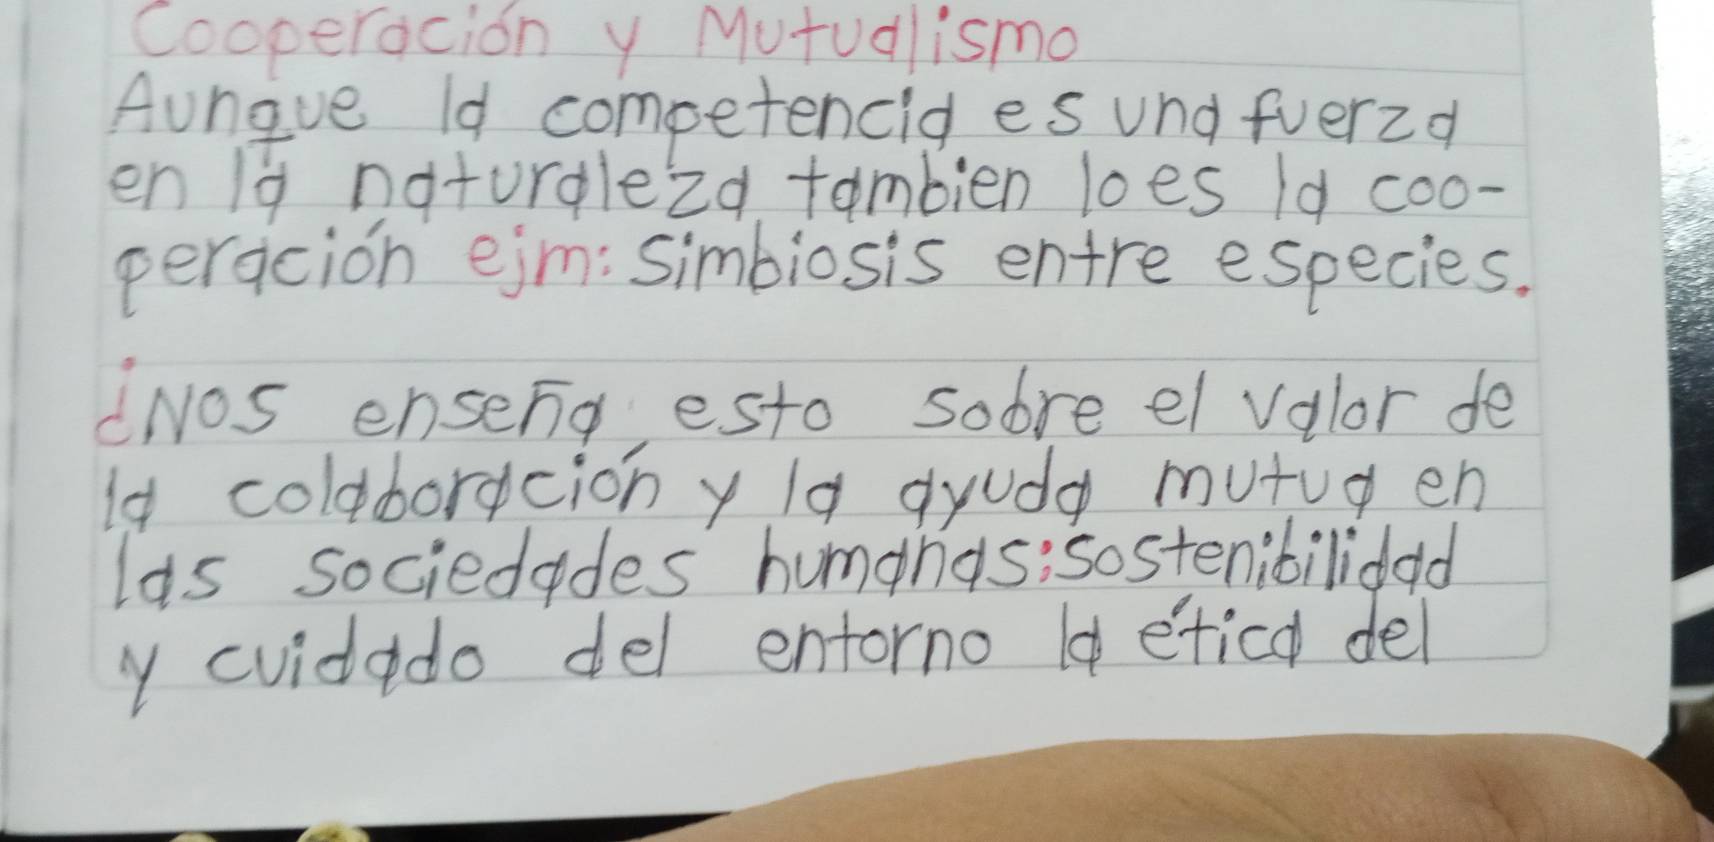 Cooperación y Mutualismo
Aunque la competencia es una fuerza
en la naturaleza tambien lo es la coo-
peración ejm: simbiosis entre especies.
¿Nos enseña esto sobre el valor de
la colaboración y la ayuda mutua en
las sociedades humanas: sostenibilidad
y cuidado del entorno la ética del